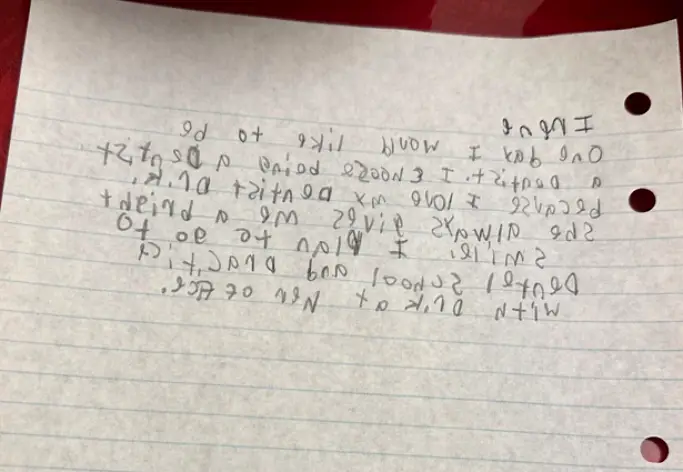 One day I would like to be
a Dentist. I choose being a Dentist
because I love my Dentist Dr.K.
She always gives me a bright
smile. I plan to go to
Dental School and practice
with Dr.K at New office.